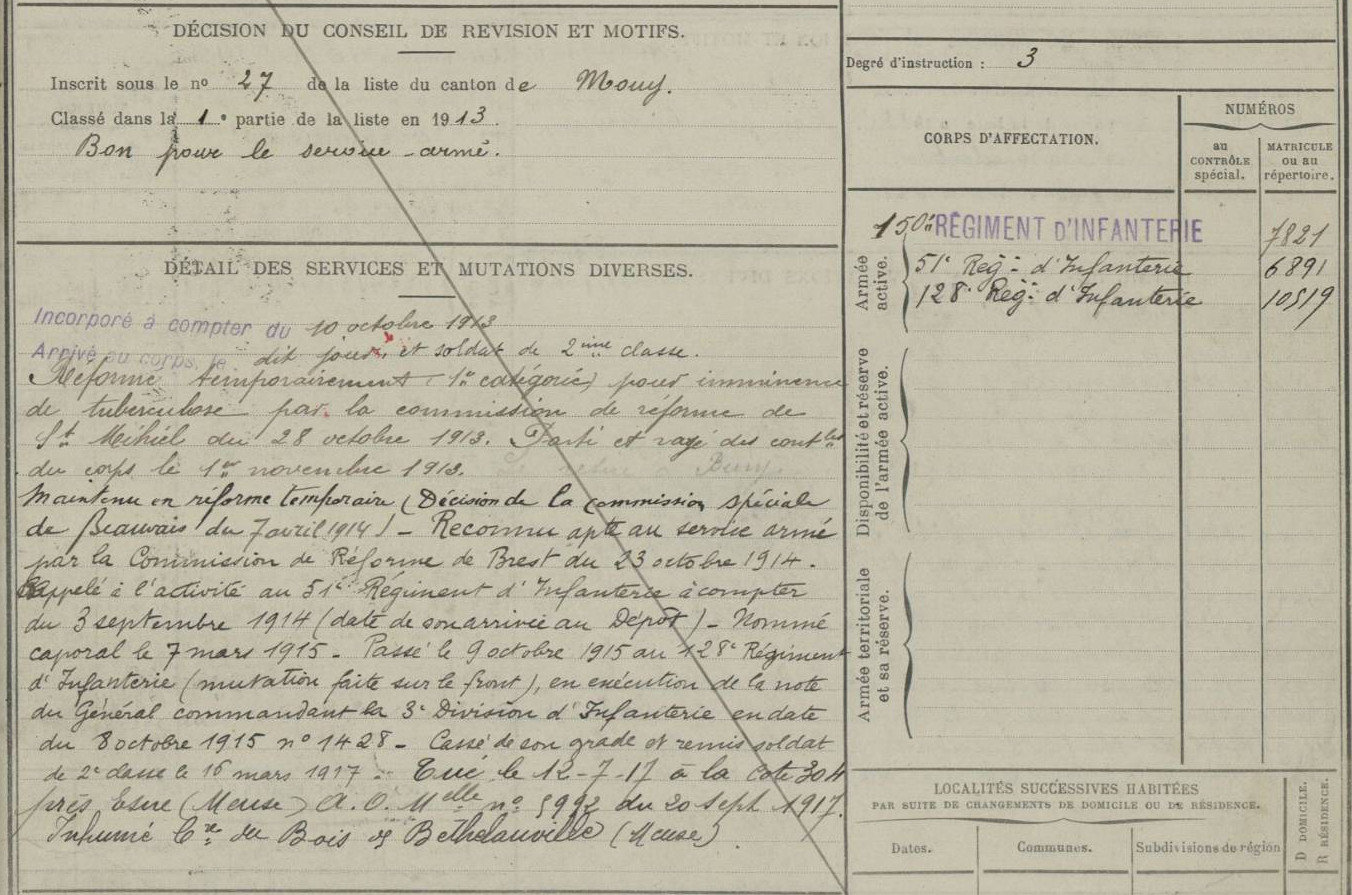 DÉCISION DU CONSEIL DE REVISION ET MOTIFS.
Inscrit sous le no 27 de la liste du canton de Mouy.
Classé dans la 1e partie de la liste en 1913.
Bon pour le service armé.
DÉTAIL DES SERVICES ET MUTATIONS DIVERSES.
Incorporé à compter du 10 octobre 1913
Arrivé au corps le dit jour, et soldat de 2ème classe.
Réformé temporairement (1re catégorie) pour imminence
de tuberculose par la commission de réforme de
St Mihiel du 28 octobre 1913. Parti et rayé des contles
du corps le 1er novembre 1913.
Maintenu en réforme temporaire (Décision de la commission spéciale
de Beauvais du 7 avril 1914) - Reconnu apte au service armé
par la Commission de Réforme de Brest du 23 octobre 1914.
Rappelé à l'activité au 51e Régiment d'Infanterie à compter
du 3 septembre 1914 (date de son arrivée au Dépôt) - Nommé
caporal le 7 mars 1915 - Passé le 9 octobre 1915 au 128e Régiment
d'Infanterie (mutation faite sur le front), en exécution de la note
du Général commandant la 3e Division d'Infanterie en date
du 8 octobre 1915 no 1428 - Cassé de son grade et remis soldat
de 2e classe le 16 mars 1917 - Tué le 12-7-17 à la cote 304
près (Meuse) A.O. Melle no 5992 du 20 Sept 1917.
Inhumé Cre du Bois de Bethelauville (Meuse).
Degré d'instruction : 3
CORPS D'AFFECTATION.
NUMÉROS
au CONTRÔLE spécial.
MATRICULE ou au répertoire.
150e RÉGIMENT D'INFANTERIE 7821
51e Regt d'Infanterie 6891
128e Regt d'Infanterie 10519
Armée active.
Disponibilité et réserve de l'armée active.
Armée territoriale et sa réserve.
LOCALITÉS SUCCESSIVES HABITÉES
PAR SUITE DE CHANGEMENTS DE DOMICILE OU DE RÉSIDENCE.
Dates.
Communes.
Subdivisions de région
D DOMICILE.
R RÉSIDENCE.